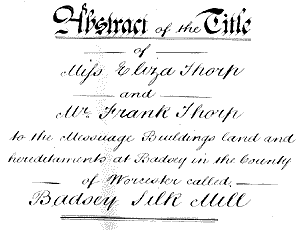 Abstract of the Title
of
Miss Eliza Thorp
and
Mr. Frank Thorp
to the Messuage Buildings land and
hereditaments at Badsey in the County
of Worcester called
Badsey Silk Mill